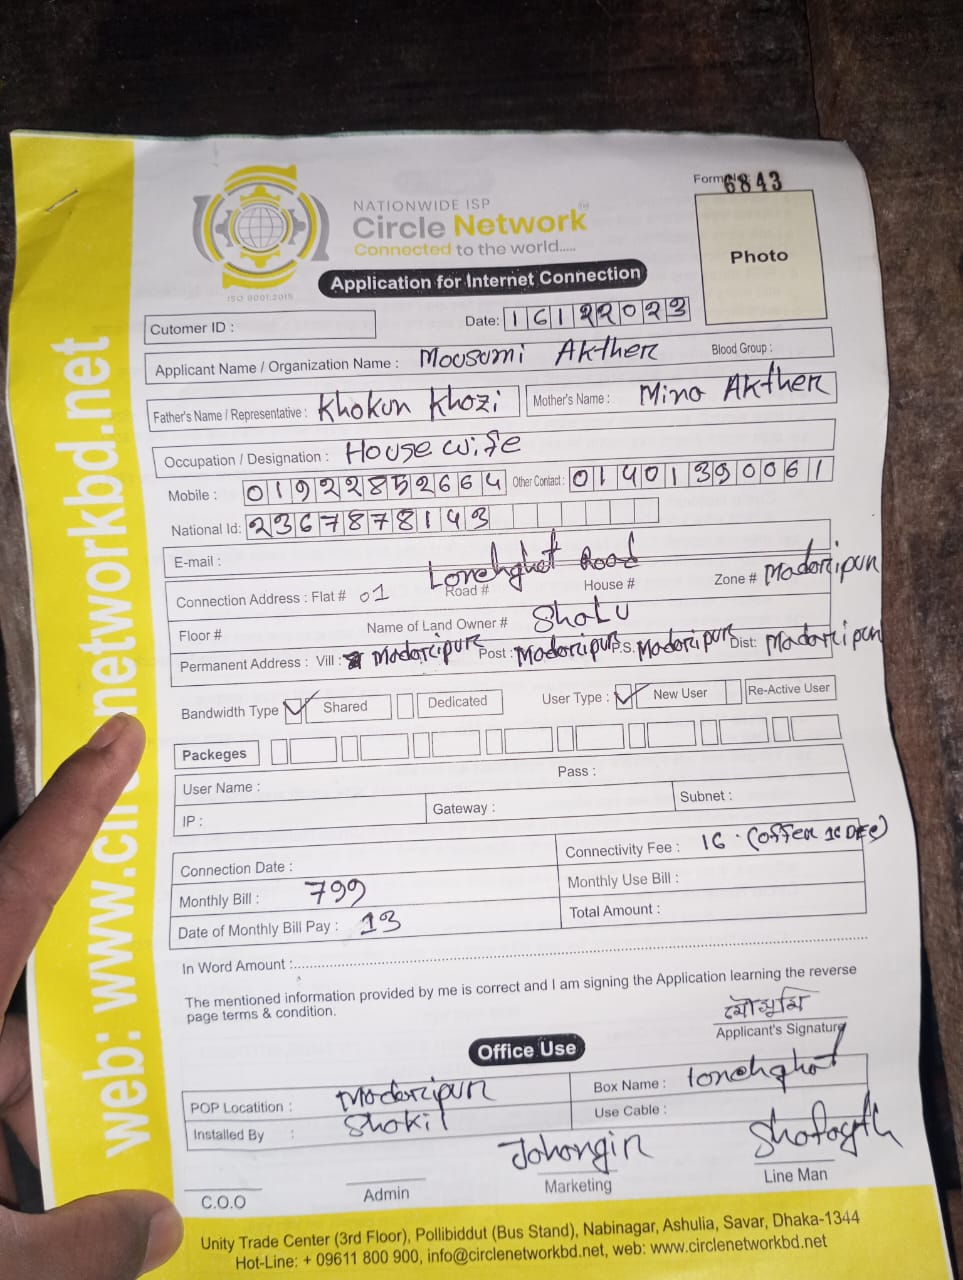 Form 6843
NATIONWIDE ISP
Circle Network
Connected to the world.....
ISO 9001:2015
Photo
Application for Internet Connection
Cutomer ID :
Date: 16122023
Applicant Name / Organization Name : Mousumi Akther Blood Group :
Father's Name / Representative : Khokun Khozi Mother's Name : Mina Akther
Occupation / Designation : House wife
Mobile : 01922852664 Other Contact : 01401390061
National Id: 2367878143
E-mail :
Connection Address : Flat # 01 Lonchghat Road Road # House # Zone # Madaripur
Floor # Name of Land Owner # Shalu
Permanent Address : Vill : Madaripur Post : Madaripur P.S. Madaripur Dist: Madaripur
Bandwidth Type Shared Dedicated User Type : New User Re-Active User
Packeges
User Name : Pass :
IP : Gateway : Subnet :
Connection Date : Connectivity Fee : 16 . (offer 16 DEC)
Monthly Bill : 799 Monthly Use Bill :
Date of Monthly Bill Pay : 13 Total Amount :
In Word Amount :
The mentioned information provided by me is correct and I am signing the Application learning the reverse
page terms & condition.
মৌসুমি
Applicant's Signature
Office Use
POP Locatition : Madaripur Box Name : lonchghat
Installed By : Shakil Use Cable :
Jahangir
C.O.O Admin Marketing Line Man
Unity Trade Center (3rd Floor), Pollibiddut (Bus Stand), Nabinagar, Ashulia, Savar, Dhaka-1344
Hot-Line: + 09611 800 900, info@circlenetworkbd.net, web: www.circlenetworkbd.net
web: www.cir networkbd.net